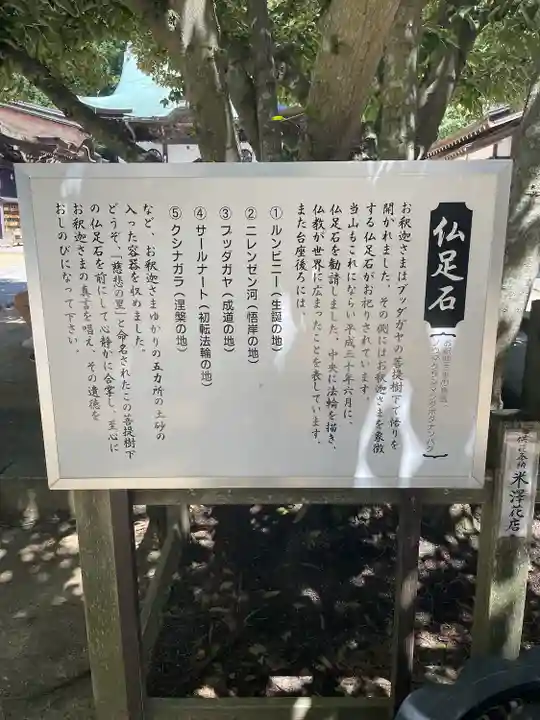 仏足石
お釈迦さまはブッダガヤの菩提樹下で悟りを
開かれました。その側にはお釈迦さまを象徴
する仏足石がお祀りされています。
当山もこれにならい平成三十年六月に、
仏足石を勧請しました。中央に法輪を描き、
仏教が世界に広まったことを表しています。
また台座後ろには、
① ルンビニー（生誕の地）
② ニレンゼン河（悟岸の地）
③ ブッダガヤ（成道の地）
④ サールナート（初転法輪の地）
⑤ クシナガラ（涅槃の地）
など、お釈迦さまゆかりの五カ所の土砂の
入った容器を収めました。
どうぞ、「慈悲の里」と命名されたこの菩提樹下
の仏足石を前にして心静かに合掌し、至心に
お釈迦さまの真言を唱え、その遺徳を
おしのびになって下さい。
米澤花店